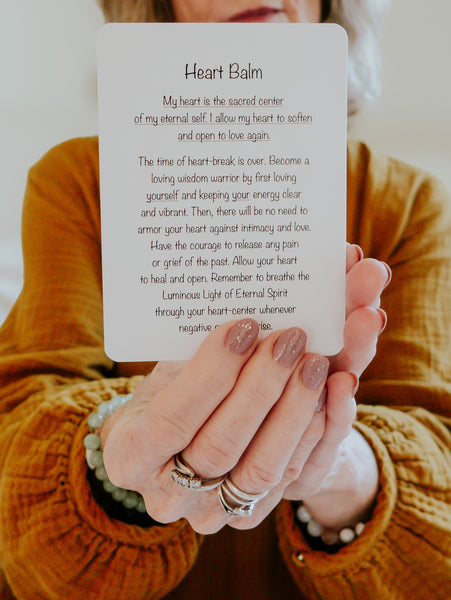 Heart Balm
My heart is the sacred center
of my eternal self. I allow my heart to soften
and open to love again.
The time of heart-break is over. Become a
loving wisdom warrior by first loving
yourself and keeping your energy clear
and vibrant. Then, there will be no need to
armor your heart against intimacy and love.
Have the courage to release any pain
or grief of the past. Allow your heart
to heal and open. Remember to breathe the
Luminous Light of Eternal Spirit
through your heart-center whenever
negative